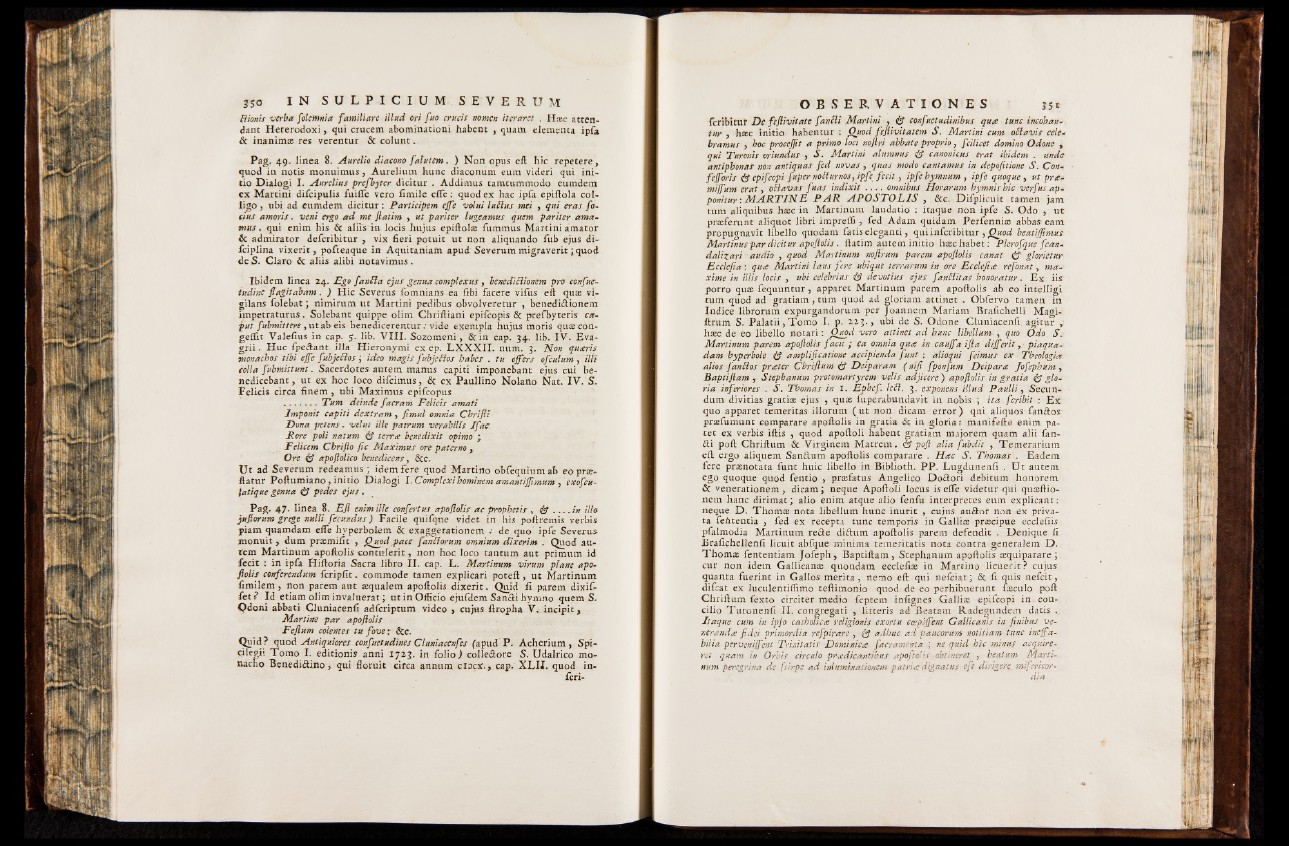 350 IN SULPICIUM SEVERUM
ctionis verba solemnia familiare illud ori suo crucis nomen iteraret . Hæc atten-
dant Heterodoxi , qui crucem abominationi habent , quam elementa ipsa
& inanimæ res verentur & colunt .
Pag. 49. linea 8. Aurelio diacono salutem . ) Non opus est hic repetere ,
quod in notis monuimus , Aurelium hunc diaconum eum videri qui ini-
tio Dialogi I. Aurelius presbyter dicitur . Addimus tantummodo eumdem
ex Martini discipulis fuisse vero simile esse : quod ex hac ipsa epistola col-
ligo , ubi ad eumdem dicitur : Participem esse volui luctus mei , qui eras so-
cius amoris . veni ergo ad me statim , ut pariter lugeamus quem pariter ama-
mus . qui enim his & aliis in locis hujus epistolæ summus Martini amator
& admirator describitur , vix fieri potuit ut non aliquando sub ejus di-
sciplina vixerit , posteaque in Aquitaniam apud Severum migraverit ; quod
de S. Claro & aliis alibi notavimus .
Ibidem linea 24. Ego sancta ejus genua complexus , benedictionem pro consue-
tudine flagitabam . ) Hic Severus somnians ea sibi facere visus est quæ vi-
gilans solebat ; nimirum ut Martini pedibus obvolveretur , benedictionem
impetraturus . Solebant quippe olim Christiani episcopis & presbyteris ca-
put submittere , ut ab eis benedicerentur : vide exempla hujus moris quæ con-
gessit Valesius in cap. 5. lib. VIII. Sozomeni , & in cap. 34. lib. IV. Eva-
grii . Huc spectant illa Hieronymi ex ep. LXXXII. num. 3. Non quæris
monachos tibi esse subjectos ; ideo magis subjectos habes . tu offers osculum , illi
colla submittunt . Sacerdotes autem manus capiti imponebant ejus cui be-
nedicebant , ut ex hoc loco discimus , & ex Paullino Nolano Nat. IV. S.
Felicis circa finem , ubi Maximus episcopus
....... Tum deinde sacram Felicis amati
Imponit capiti dextram , simul omnia Christi
Dona petens . velut ille patrum verabilis Isac
Rore poli natum & terræ benedixit opimo ;
Felicem Christo sic Maximus ore paterno ,
Ore & apostolico benedicens , &c.
Ut ad Severum redeamus ; idem fere quod Martino obsequium ab eo præ-
statur Postumiano , initio Dialogi I. Complexi hominem amantissimum , exoscu-
latique genua & pedes ejus .
Pag. 47. linea 8. Est enim ille consertus apostolis ac prophetis , & .... in illo
justorum grege nulli secundus ) Facile quisque videt in his postremis verbis
piam quamdam esse hyperbolem & exaggerationem : de quo ipse Severus
monuit , dum præmisit , Quod pace sanctorum omnium dixerim . Quod au-
tem Martinum apostolis contulerit , non hoc loco tantum aut primum id
fecit : in ipsa Historia Sacra libro II. cap. L. Martinum virum plane apo-
stolis conferendum scripsit . commode tamen explicari potest , ut Martinum
similem , non parem aut æqualem apostolis dixerit . Quid si parem dixis-
set ? Id etiam olim invaluerat ; ut in Officio ejusdem Sancti hymno quem S.
Odoni abbati Cluniacensi adscriptum video , cujus stropha V. incipit ,
Martine par apostolis
Festum colentes tu fove : &c.
Quid ? quod Antiquiores consuetudines Cluniacenses (apud P. Acherium , Spi-
cilegii Tomo I. editionis anni 1723. in folio) collectore S. Udalrico mo-
nacho Benedictino , qui floruit circa annum cIↃcx. , cap. XLII. quod in-
scri-
OBSERVATIONES 351
scribitur De festivitate sancti Martini , & consuetudinibus quæ tunc incohan-
tur , hæc initio habentur : Quod festivitatem S. Martini cum octavis cele-
bramus , hoc processit a primo loci nostri abbate proprio , scilicet domino Odone ,
qui Turonis oriundus , S. Martini alumnus & canonicus erat ibidem . unde
antiphonas non antiquas sed novas , quas modo cantamus in depositione S. Con-
fessoris & episcopi super nocturnos, ipse fecit , ipse hymnum , ipse quoque , ut præ-
missum erat , octavas suas indixit .... omnibus Horarum hymnis hic versus ap-
ponitur : MARTINE PAR APOSTOLIS , &c. Displicuit tamen jam
tum aliquibus hæc in Martinum laudatio : itaque non ipse S. Odo , ut
præferunt aliquot libri impressi , sed Adam quidam Persenniæ abbas eam
propugnavit libello quodam satis eleganti , qui inscribitur , Quod beatissimus
Martinus par dicitur apostolis . statim autem initio hæc habet : Plerosque scan-
dalizari audio , quod Martinum nostrum parem apostolis canat & glorietur
Ecclesia : quæ Martini laus fere ubique terrarum in ore Ecclesiæ resonat , ma-
xime in illis locis , ubi celebrius & devotius ejus sanctitas honoratur . Ex iis
porro quæ sequuntur , apparet Martinum parem apostolis ab eo intelligi
tum quod ad gratiam , tum quod ad gloriam attinet . Observo tamen in
Indice librorum expurgandorum per Joannem Mariam Brasichelli Magi-
strum S. Palatii , Tomo I. p. 223. , ubi de S. Odone Cluniacensi agitur ,
hæc de eo libello notari : Quod vero attinet ad hunc libellum , quo Odo S.
Martinum parem apostolis facit ; ea omnia quæ in caussa ista disserit , piaqua-
dam hyperbole & amplificatione accipienda sunt : alioqui scimus ex Theologia
alios sanctos præter Christum & Deiparam ( nisi sponsum Deiparæ Josephum ,
Baptistam , Stephanum protomartyrem velis adjicere ) apostolis in gratia & glo-
ria inferiores . S. Thomas in I. Ephes. lect. 3. exponens illud Paulli , Secun-
dum divitias gratiæ ejus , quæ superabundavit in nobis ; ita scribit : Ex
quo apparet temeritas illorum ( ut non dicam error ) qui aliquos sanctos
præsumunt comparare apostolis in gratia & in gloria : manifeste enim pa-
tet ex verbis istis , quod apostoli habent gratiam majorem quam alii san-
cti post Christum & Virginem Matrem . & post alia subdit , Temerarium
est ergo aliquem Sanctum apostolis comparare . Hæc S. Thomas . Eadem
fere prænotata sunt huic libello in Biblioth. PP. Lugdunensi . Ut autem
ego quoque quod sentio , præfatus Angelico Doctori debitum honorem
& venerationem , dicam ; neque Apostoli locus is esse videtur qui quæstio-
nem hanc dirimat ; alio enim atque alio sensu interpretes eum explicant :
neque D. Thomæ nota libellum hunc inurit , cujus auctor non ex priva-
ta sententia , sed ex recepta tunc temporis in Galliæ præcipue ecclesiis
psalmodia Martinum recte dictum apostolis parem defendit . Denique si
Brasichellensi licuit absque minima temeritatis nota contra generalem D.
Thomæ sententiam Joseph , Baptistam , Stephanum apostolis æquiparare ;
cur non idem Gallicanæ quondam ecclesiæ in Martino licuerit ? cujus
quanta fuerint in Gallos merita , nemo est qui nesciat ; & si quis nescit ,
discat ex luculentissimo testimonio quod de eo perhibuerunt sæculo post
Christum sexto circiter medio septem insignes Galliæ episcopi in con-
cilio Turonensi II. congregati , litteris ad Beatam Radegundem datis .
Itaque cum in ipso catholicæ religionis exortu cœpissent Gallicanis in finibus ve-
nerandæ fidei primordia respirare , & adhuc ad paucorum notitiam tunc ineffa-
bilia pervenissent Trinitatis Dominicæ sacramenta ; ne quid hic minus acquire-
ret quam in Orbis circulo prædicantibus apostolis obtineret , beatum Marti-
num peregrina de stirpe ad inluminationem patriæ dignatus est dirigere misericor-
dia